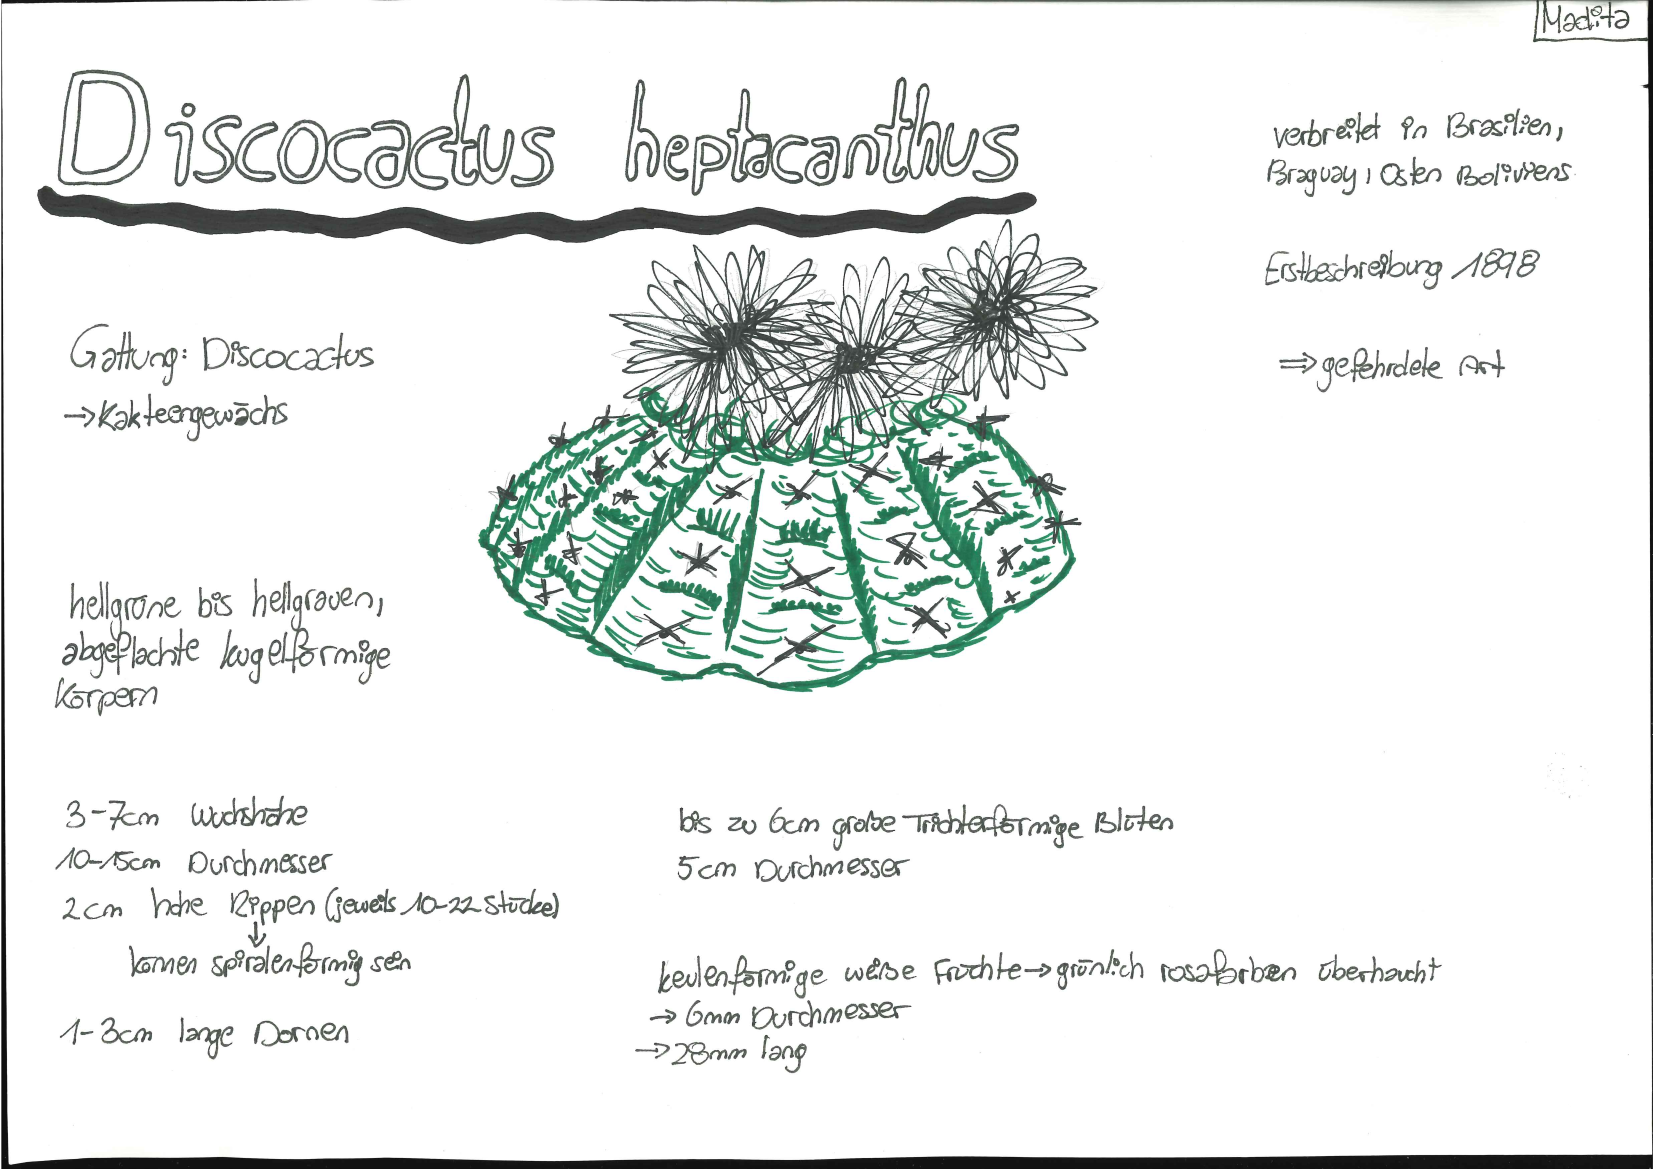 Madita
Discocactus heptacanthus
verbreitet in Brasilien,
Braguay, Osten Boliviens
Erstbeschreibung 1898
⇒ gefehrdete Art
Gattung: Discocactus
→ Kakteengewächs
hellgrüne bis hellgrauen,
abgeflachte kugelförmige
Körpern
3-7cm Wuchshöhe
10-15cm Durchmesser
2cm hohe Rippen (jeweils 10-22 Stücke)
↓
können spiralenförmig sein
1-3cm lange Dornen
bis zu 6cm große Trichterförmige Blüten
5cm Durchmesser
keulenförmige weiße Früchte → grünlich rosafarben überhaucht
→ 6mm Durchmesser
→ 28mm lang